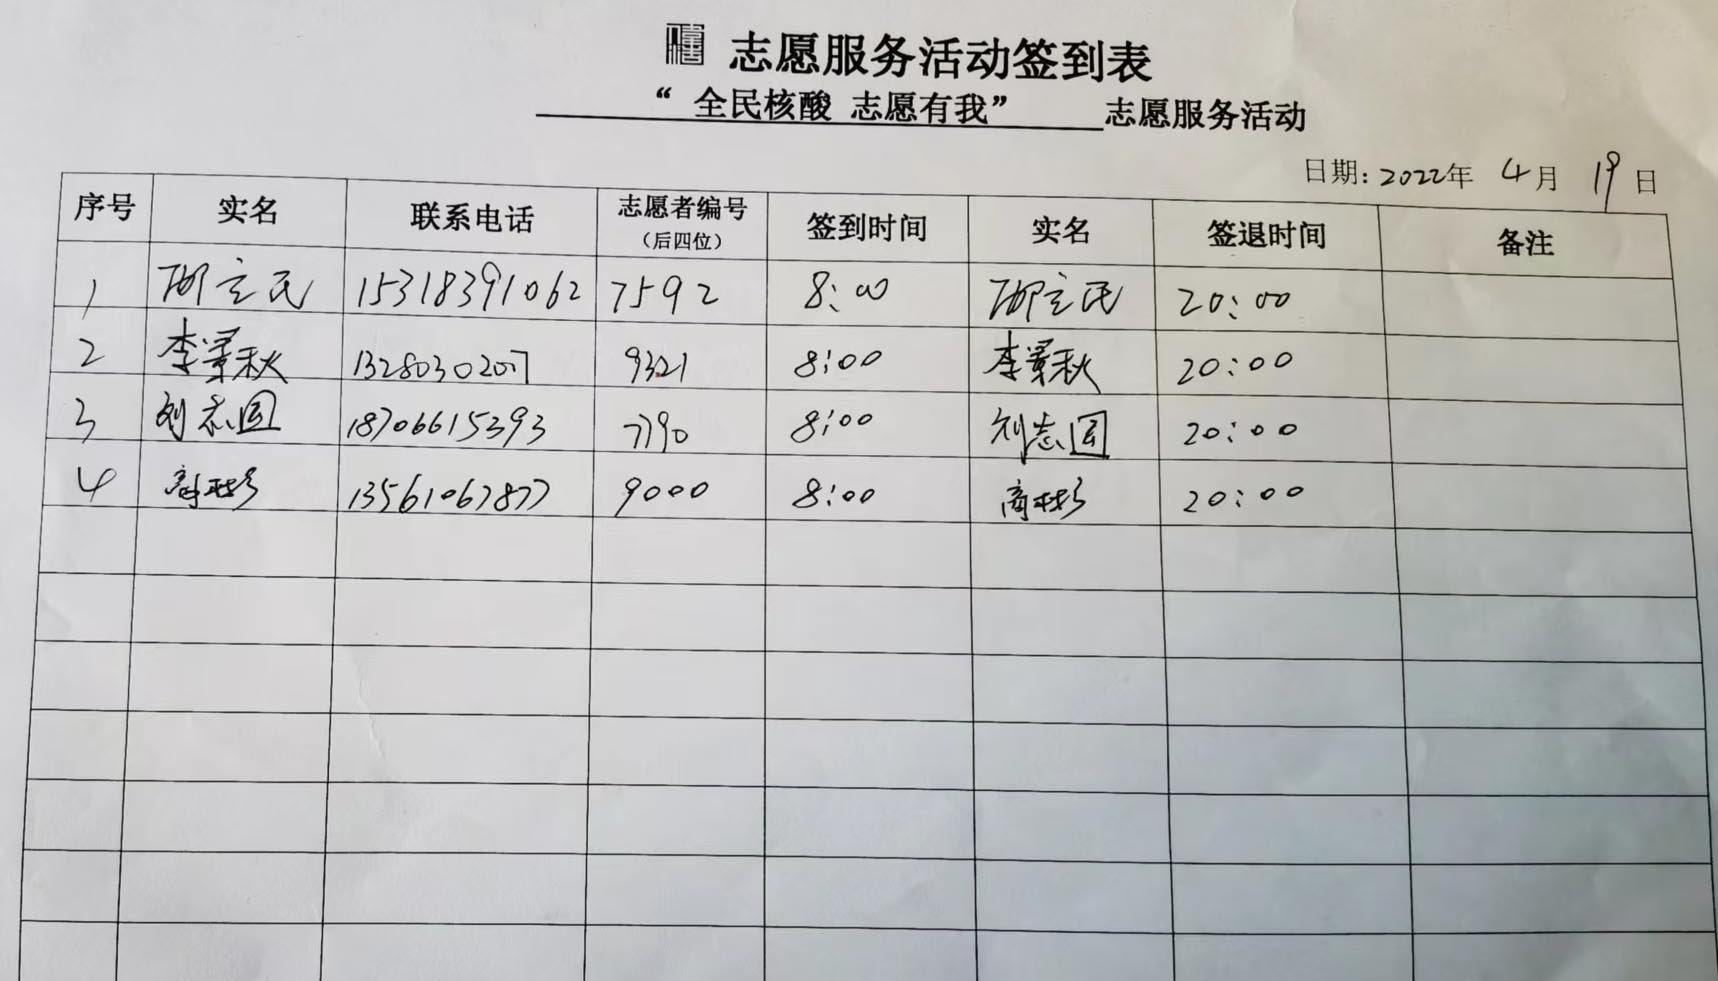 志愿服务活动签到表
“ 全民核酸 志愿有我” 志愿服务活动
日期: 2022年 4月 19日
序号 实名 联系电话 志愿者编号 (后四位) 签到时间 实名 签退时间 备注
1 邴立民 15318391062 7592 8:00 邴立民 20:00
2 李景秋 13280302007 9321 8:00 李景秋 20:00
3 刘志圆 18706615393 7190 8:00 刘志圆 20:00
4 商彬 13561067877 9000 8:00 商彬 20:00